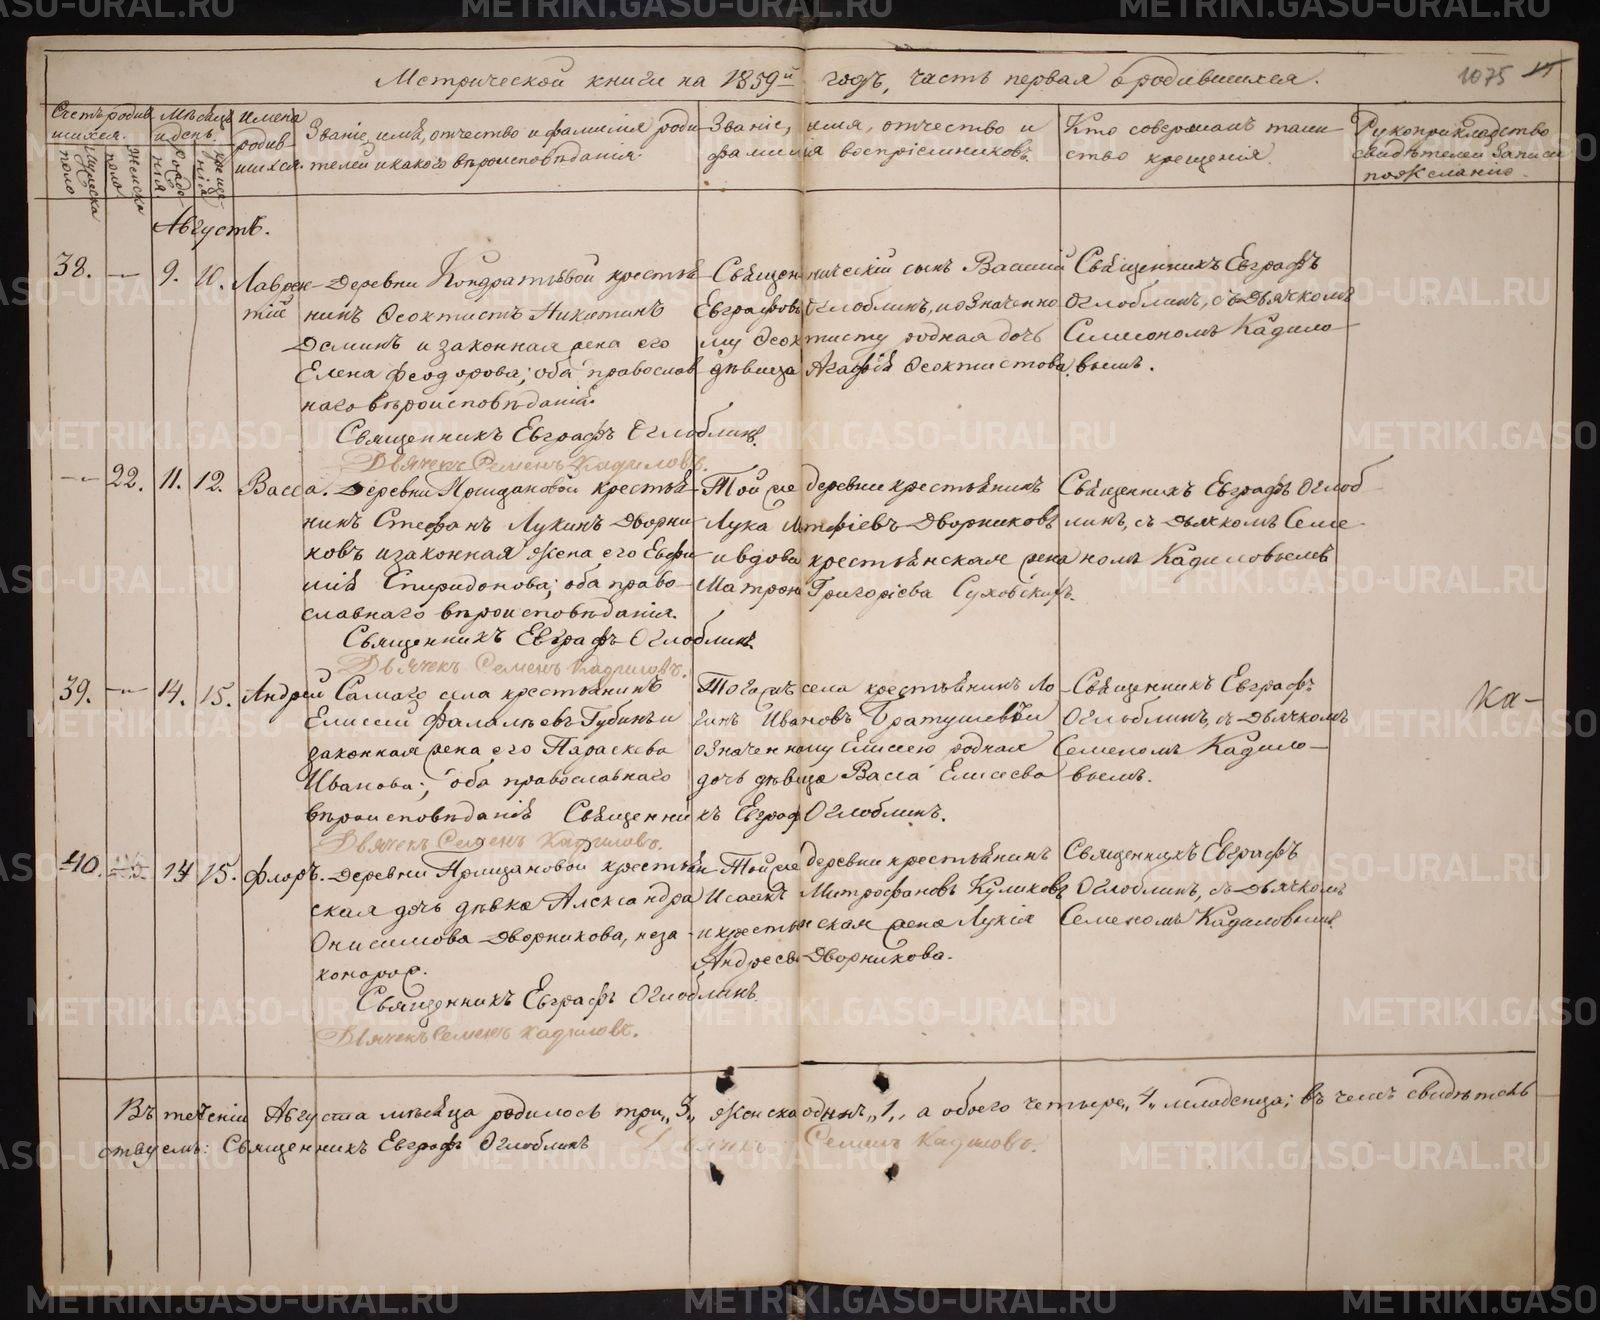 Метрической книги на 1859й годъ, часть первая о родившихся.
1075
Счетъ родившихся.
Мужеска полу
Женска полу
Мѣсяцъ и день
Рожденія.
Крещенія
Имена родившихся.
Званіе, имя, отчество и фамилія родителей и какого вѣроисповѣданія.
Званіе, имя, отчество и фамилія воспріемниковъ.
Кто совершалъ таинство крещенія.
Рукоприкладство свидѣтелей записи по желанію.
Августъ.
38. — 9. 10. Лаврентій
Деревни Кондратьевой крестья-
нинъ Ѳеоктистъ Никитинъ
Деминъ и законная жена его
Елена Феодорова; оба православ-
наго вѣроисповѣданія.
Священникъ Евграфъ Оглоблинъ.
Дьячекъ Семенъ Кадиловъ.
Священническій сынъ Василій
Евграфовъ Оглоблинъ, и означенно-
му Ѳеоктисту родная дочь
дѣвица Агафія Ѳеоктистова.
Священникъ Евграфъ
Оглоблинъ, съ дьячкомъ
Симеономъ Кадило-
вымъ.
— 22. 11. 12. Васса.
Деревни крестья-
нинъ Стефанъ Лукинъ Дворни-
ковъ и законная жена его Евфи-
мія Спиридонова; оба право-
славнаго вѣроисповѣданія.
Священникъ Евграфъ Оглоблинъ.
Дьячекъ Семенъ Кадиловъ.
Той же деревни крестьянинъ
Лука Дворниковъ
и вдова крестьянская жена
Матрона Григоріева
Священникъ Евграфъ Оглоб-
линъ, съ дьячкомъ Семе-
номъ Кадиловымъ
39. — 14. 15. Андрей
Самаго села крестьянинъ
Елисей Фалалѣевъ Губинъ и
законная жена его Параскева
Иванова; оба православнаго
вѣроисповѣданія Священникъ Евграфъ Оглоблинъ.
Дьячекъ Семенъ Кадиловъ.
Тогожъ села крестьянинъ Ло-
гинъ Ивановъ и
означенному Елисею родная
дочь дѣвица Васса Елисеева
Священникъ Евграфъ
Оглоблинъ, съ дьячкомъ
Семеномъ Кадило-
вымъ.
Ка-
40. 14 15. Флоръ.
Деревни крестьян-
ская дочь дѣвка Александра
Онисимова Дворникова, неза-
конорож.
Священникъ Евграфъ Оглоблинъ
Дьячекъ Семенъ Кадиловъ.
Той же деревни крестьянинъ
Исаакъ Митрофановъ Куликовъ
и крестьянская жена Лукія
Андреева Дворникова.
Священникъ Евграфъ
Оглоблинъ, съ дьячкомъ
Семеномъ Кадиловымъ.
Въ теченіи Августа мѣсяца родилось три „3„ женска одинъ „1„ а обоего четыре „4„ младенца; въ чемъ свидѣтель-
ствуемъ: Священникъ Евграфъ Оглоблинъ Дьячекъ Семенъ Кадиловъ.
METRIKI.GASO-URAL.RU